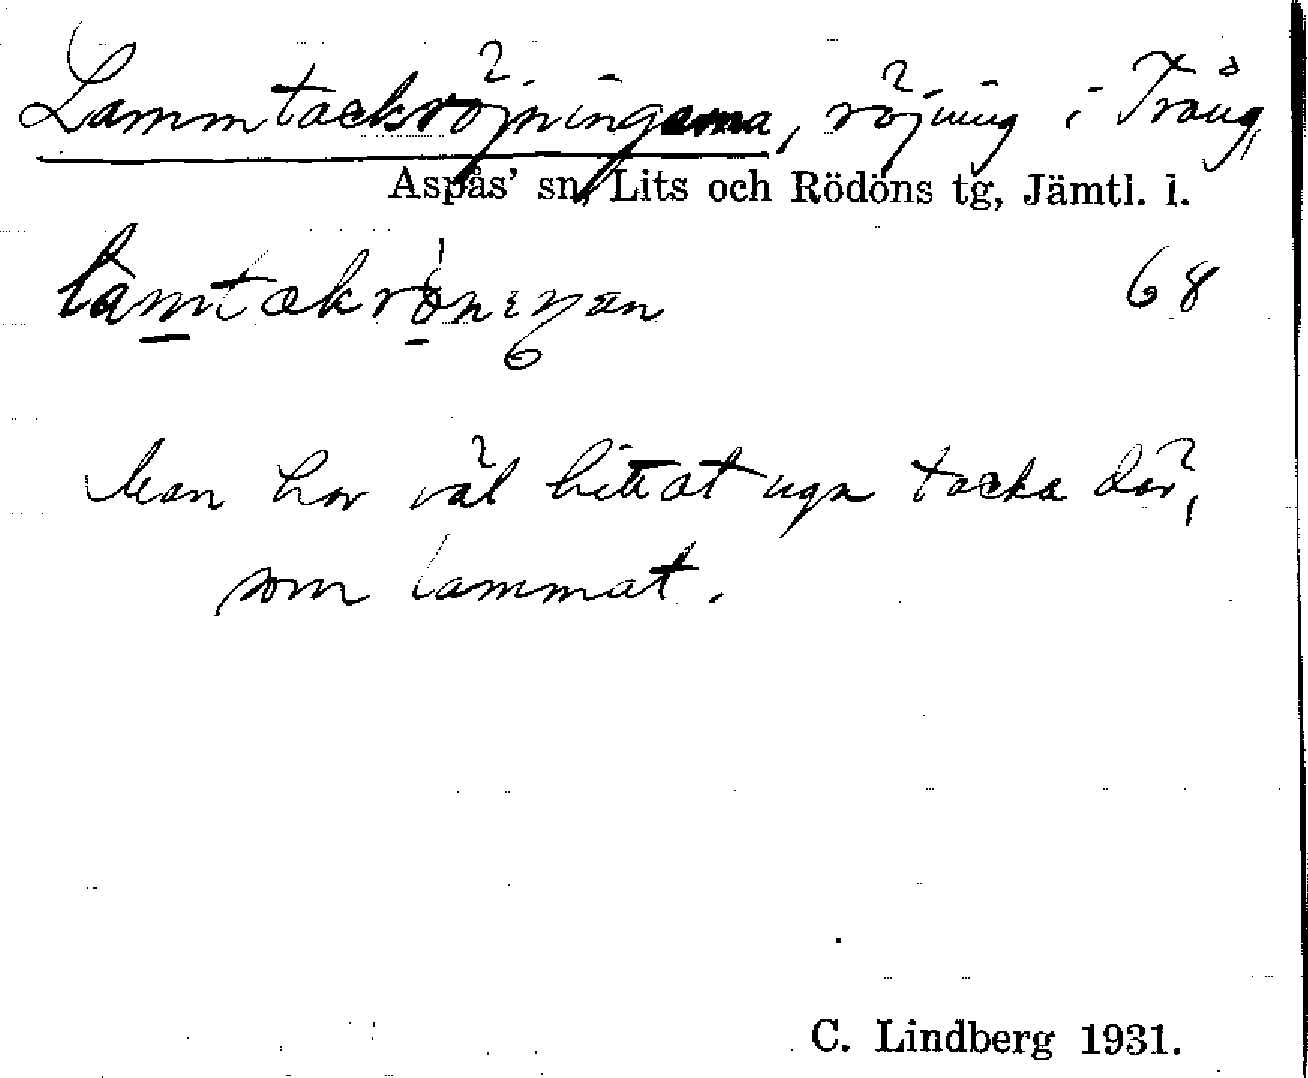 Lammtackröjningarna, röjning i Trång,
Aspås' sn, Lits och Rödöns tg, Jämtl. l.
68
Man har väl hittat ngn tacka där,
som lammat.
C. Lindberg 1931.